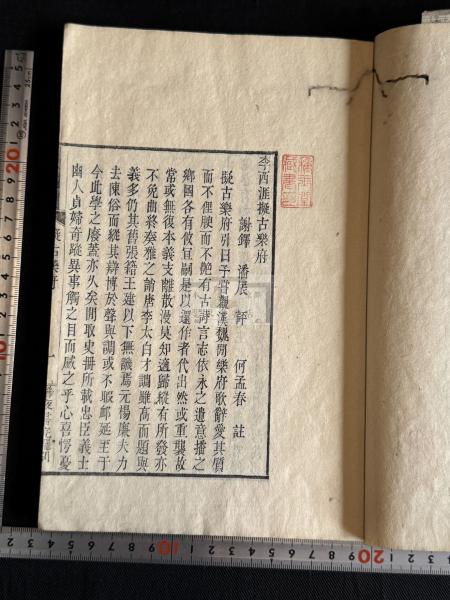 李西涯擬古樂府
謝鐸 潘辰 評 何孟春 註
擬古樂府引曰予嘗觀漢魏間樂府歌辭愛其質
而不俚腴而不艶有古詩言志依永之遺意播之
鄉國各有攸宜嗣是以還作者代出然或重襲故
常或無復本義支離散漫莫知適歸縱有所發亦
不免曲終奏雅之誚唐李太白才調雖高而題與
義多仍其舊張籍王建以下無譏焉元楊廉夫力
去陳俗而縱其辯博於聲與調或不暇邺延至于
今此學之廢蓋亦久矣間取史冊所載忠臣義士
幽人貞婦奇蹤異事觸之目而感之乎心喜愕憂
擬古樂府
一